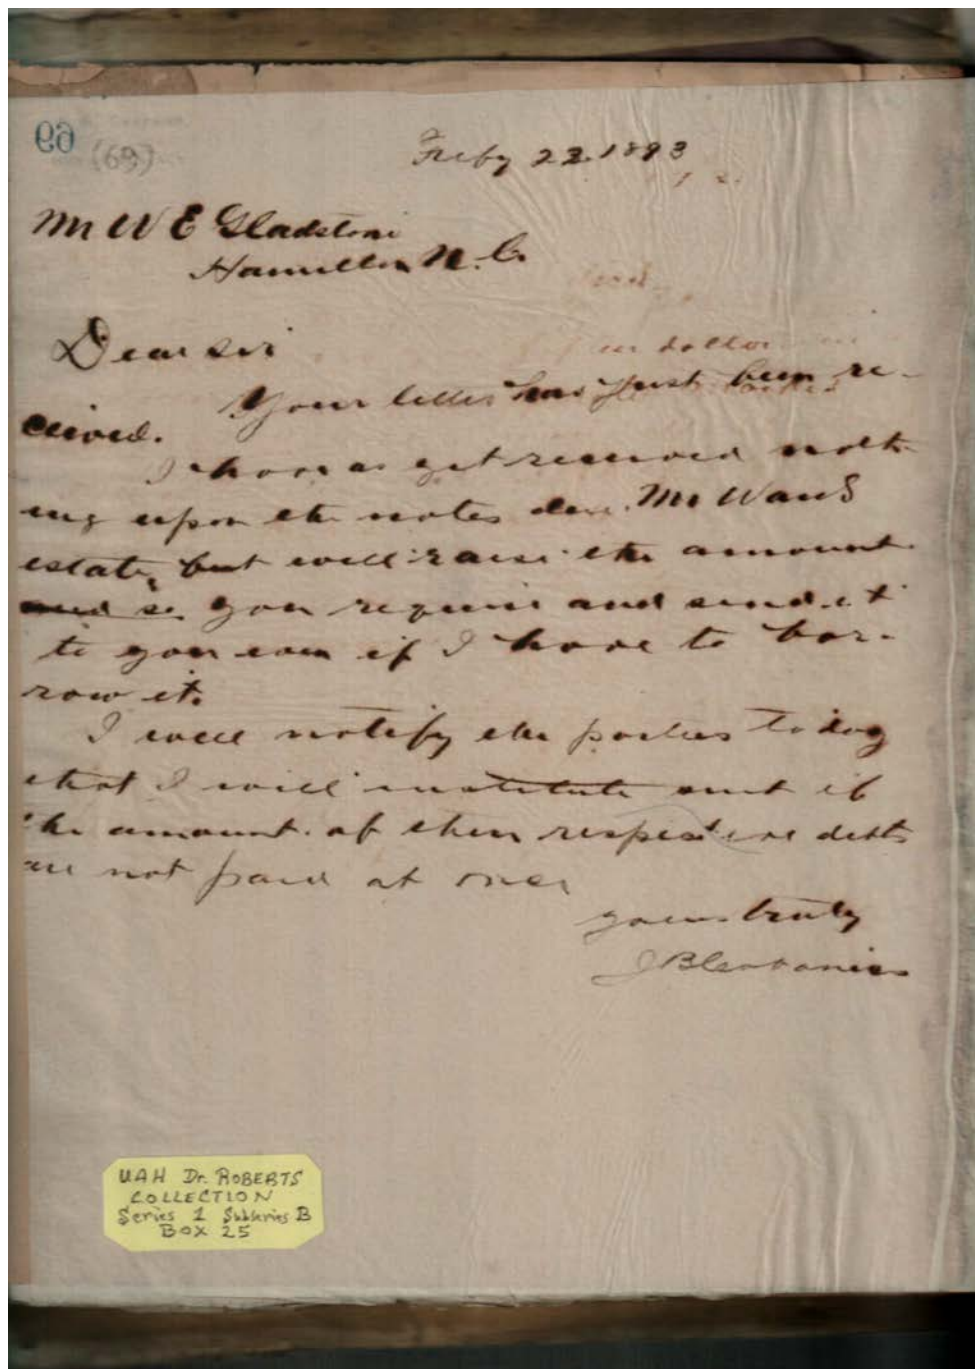 69
(69)
Feby 22 1893
Mr W E Gladstone
Hamilton N.C.
Dear Sir
Your letter has just been re-
ceived.
I have as yet received noth-
ing upon the notes due Mr Ward
estate, but will raise the amount
you require and send it
to you even if I have to bor-
row it.
I will notify the parties to day
that I will institute suit if
the amount of their respective debts
are not paid at once
yours truly
J B
UAH Dr. ROBERTS
COLLECTION
Series 1 Subseries B
BOX 25